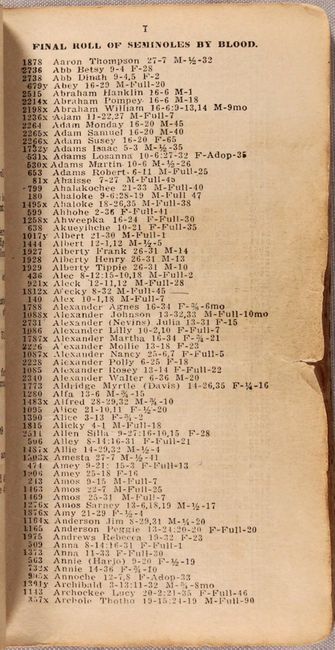 1
FINAL ROLL OF SEMINOLES BY BLOOD.
1878 Aaron Thompson 27-7 M-½-32
2736 Abb Betsy 9-4 F-28
2738 Abb Dinah 9-4,5 F-2
679y Abey 16-29 M-Full-20
2515 Abraham Hanklin 16-6 M-1
2214x Abraham Pompey 16-6 M-18
2198x Abraham William 16-6:9-13,14 M-9mo
1236x Adam 11-22,27 M-Full-7
2264 Adam Monday 16-20 M-45
2265x Adam Samuel 16-20 M-40
2266x Adam Susey 16-20 F-65
1732y Adams Isaac 5-3 M-½-35
531x Adams Losanna 10-6:27-32 F-Adop-35
530x Adams Martin 10-6 M-½-26
653 Adams Robert 6-11 M-Full-25
81x Ahaisse 7-27 M-Full-45
799 Ahalakochee 21-33 M-Full-40
180 Ahaloke 9-6:28-19 M-Full 47
1495x Ahaloke 18-26,35 M-Full-38
599 Ahhohe 2-36 F-Full-41
1258x Ahweepka 16-24 F-Full-30
638 Akueyihche 10-21 F-Full-35
1017y Albert 21-30 M-Full-1
1444 Albert 12-1,12 M-½-5
1927 Alberty Frank 26-31 M-14
1928 Alberty Henry 26-31 M-13
1929 Alberty Tippie 26-31 M-10
436 Alec 8-12:15-10,18 M-Full-2
221x Aleck 12-11,12 M-Full-28
1812x Alecky 8-32 M-Full-45
140 Alex 10-1,18 M-Full-7
1788 Alexander Agnes 16-34 F-¾-6mo
1088x Alexander Johnson 13-32,33 M-Full-10mo
2731 Alexander (Nevins) Julia 13-31 F-15
1086 Alexander Lilly 10-2,10 F-Full-7
1787x Alexander Martha 16-34 F-¾-21
2226 Alexander Mollie 13-18 F-23
1087x Alexander Nancy 25-6,7 F-Full-5
2228 Alexander Polly 6-25 F-18
1085 Alexander Rosey 13-14 F-Full-22
2310 Alexander Walter 6-36 M-20
1773 Aldridge Myrtle (Davis) 14-26,35 F-¼-16
1280 Alfa 13-6 M-¾-15
1483x Alfred 28-29,32 M-¾-10
1095 Alice 21-10,11 F-½-20
1390 Alice 3-13 F-¾-2
1815 Alicky 4-1 M-Full-18
2511 Allen Silla 9-27:16-10,15 F-28
506 Alley 8-14:16-31 F-Full-21
1487x Allie 14-29,32 M-½-4
1503x Amesta 27-7 M-½-41
474 Amey 9-21: 15-3 F-Full-13
1906 Amey 25-18 F-16
243 Amos 9-15 M-Full-7
1464 Amos 22-7 M-Full-25
1469 Amos 25-31 M-Full-7
1276x Amos Sarney 13-6,18,19 M-½-17
1876x Amy 21-29 F-½-4
1164x Anderson Jim 8-29,31 M-½-20
1165 Anderson Peggie 13-24:20-20 F-Full-20
1975 Andrews Rebecca 19-32 F-23
509 Anna 8-14:16-31 F-Full-1
1373 Anna 11-33 F-Full-30
563 Annie (Harjo) 9-20 F-½-19
732x Annie 14-36 F-¾-10
905x Annoche 12-7,8 F-Adop-33
1391y Archibald 3-13:11-32 M-¾-8mo
1143 Archockee Lucy 20-2:21-35 F-Full-46
857x Archole Thotho 19-15:24-19 M-Full-90